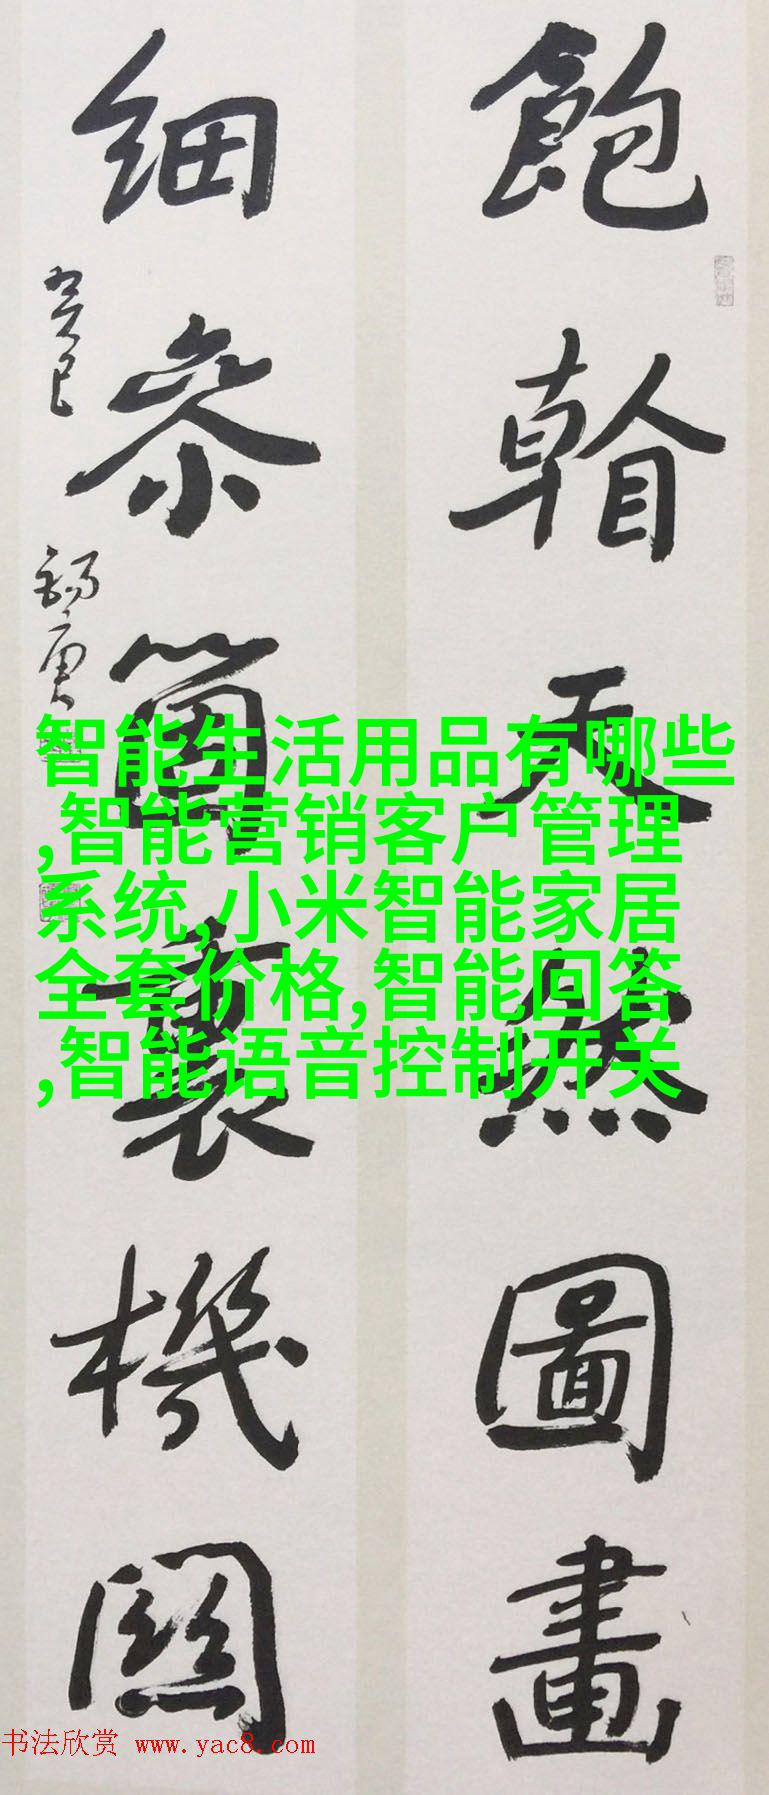 飽看天然圖畫
細參個裏機關
癸巳
智能生活用品有哪些
,智能营销客户管理
系统,小米智能家居
全套价格,智能回答
,智能语音控制开关
书法欣赏 www.yac8.com